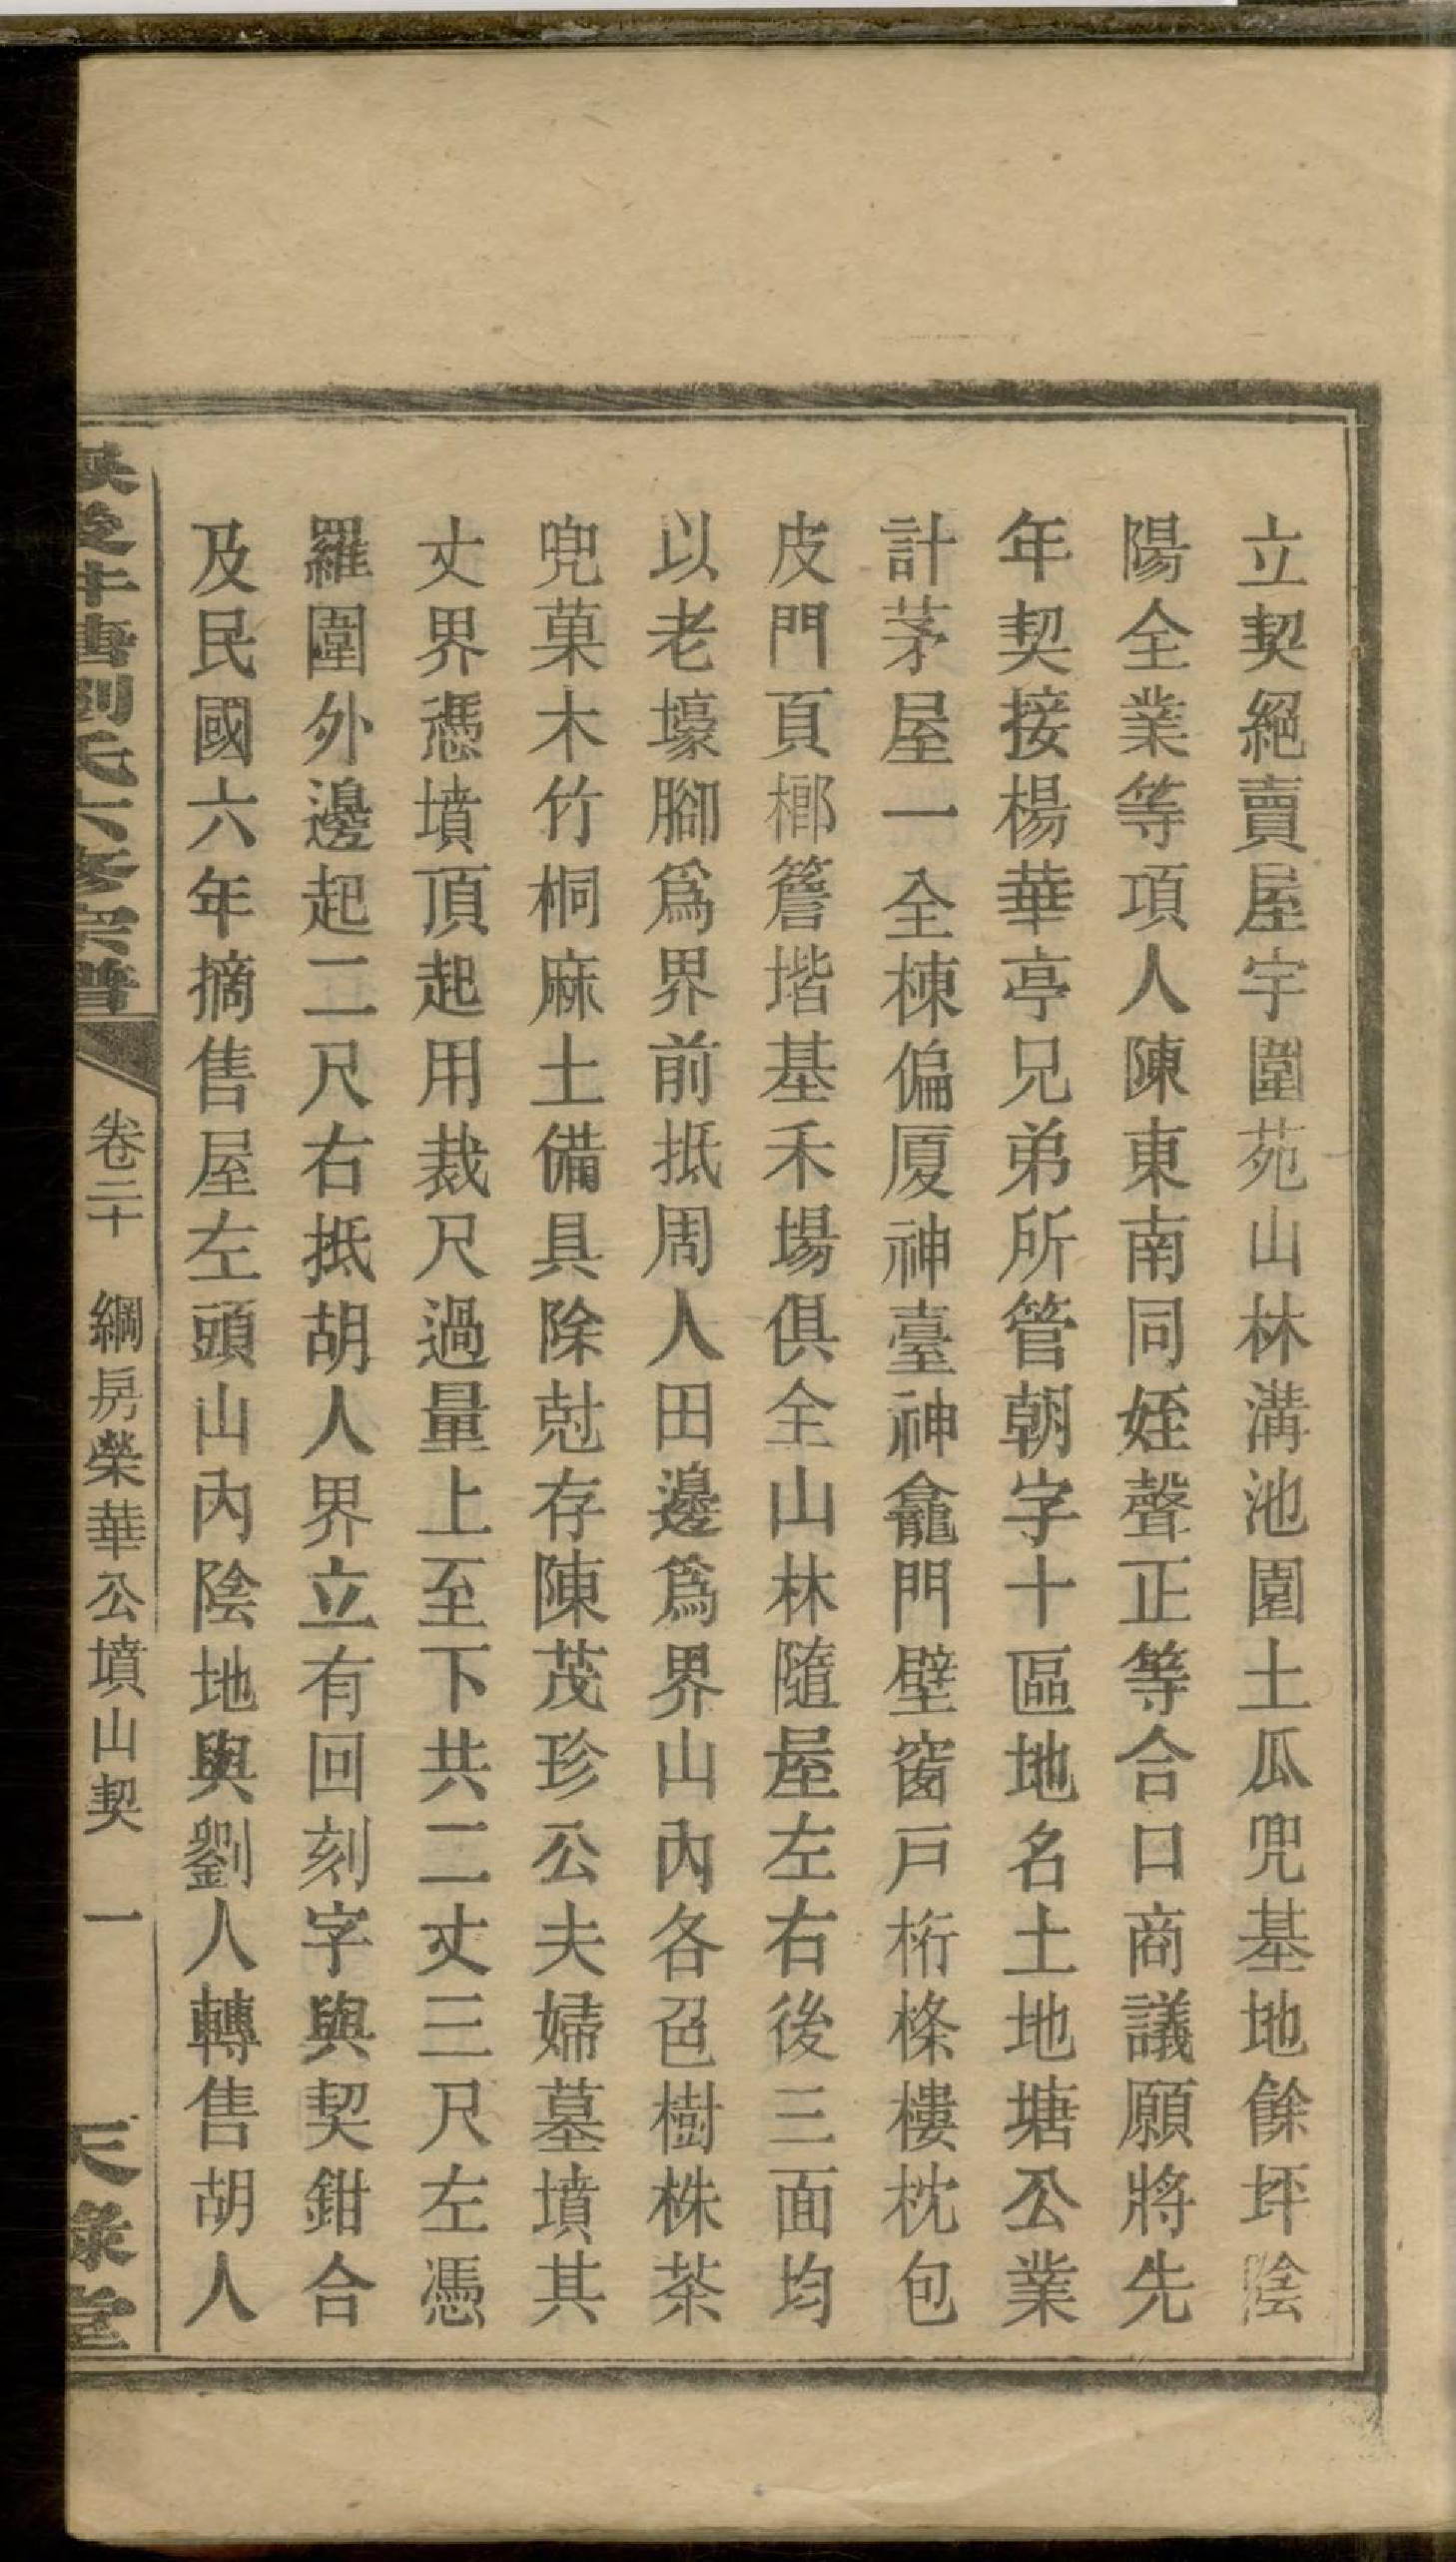 立契絕賣屋宇圍苑山林溝池園土瓜兜基地餘坪陰
陽全業等項人陳東南同姪聲正等合口商議願將先
年契接楊華亭兄弟所管朝字十區地名土地塘公業
計茅屋一全棟偏厦神臺神龕門壁窗戸桁橑樓枕包
皮門頁櫛簷堦基禾場俱全山林隨屋左右後三面均
以老壕腳爲界前抵周人田邊爲界山內各色樹株茶
兜菓木竹桐麻土備具除尅存陳茂珍公夫婦墓墳其
丈界憑墳頂起用裁尺過量上至下共二丈三尺左憑
羅圍外邊起二尺右抵胡人界立有回刻字與契鉗合
及民國六年摘售屋左頭山內陰地與劉人轉售胡人
劉氏六修宗譜
卷二十 綱房榮華公墳山契 一
天祿堂